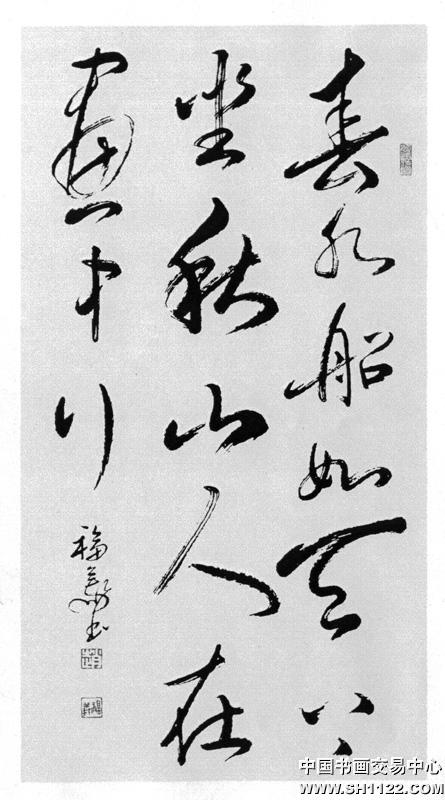 春水船如天上
坐秋山人在
画中行
福義书
中国书画交易中心
www.SH1122.com